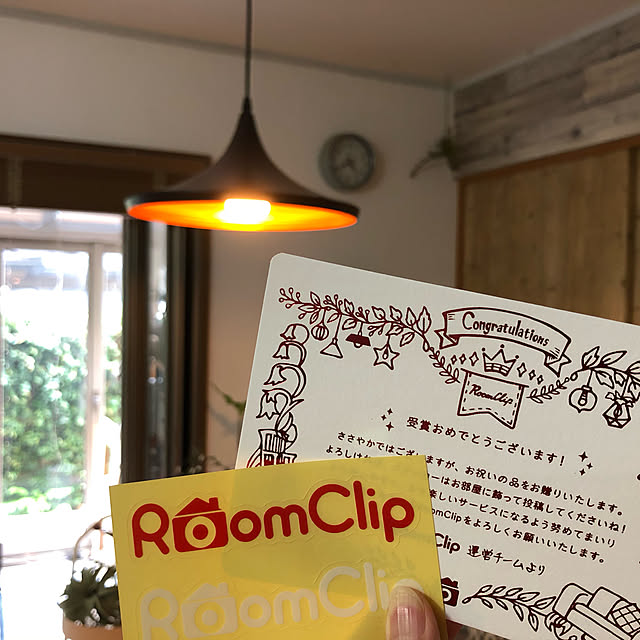 Congratulations
RoomClip
受賞おめでとうございます!
ささやかではございますが、お祝いの品をお贈りいたします。
よろしけ
ーはお部屋に飾って投稿してくださいね!
楽しいサービスになるよう努めてまいり
omClipをよろしくお願いいたします。
Clip 運営チームより
RoomClip
RoomClip